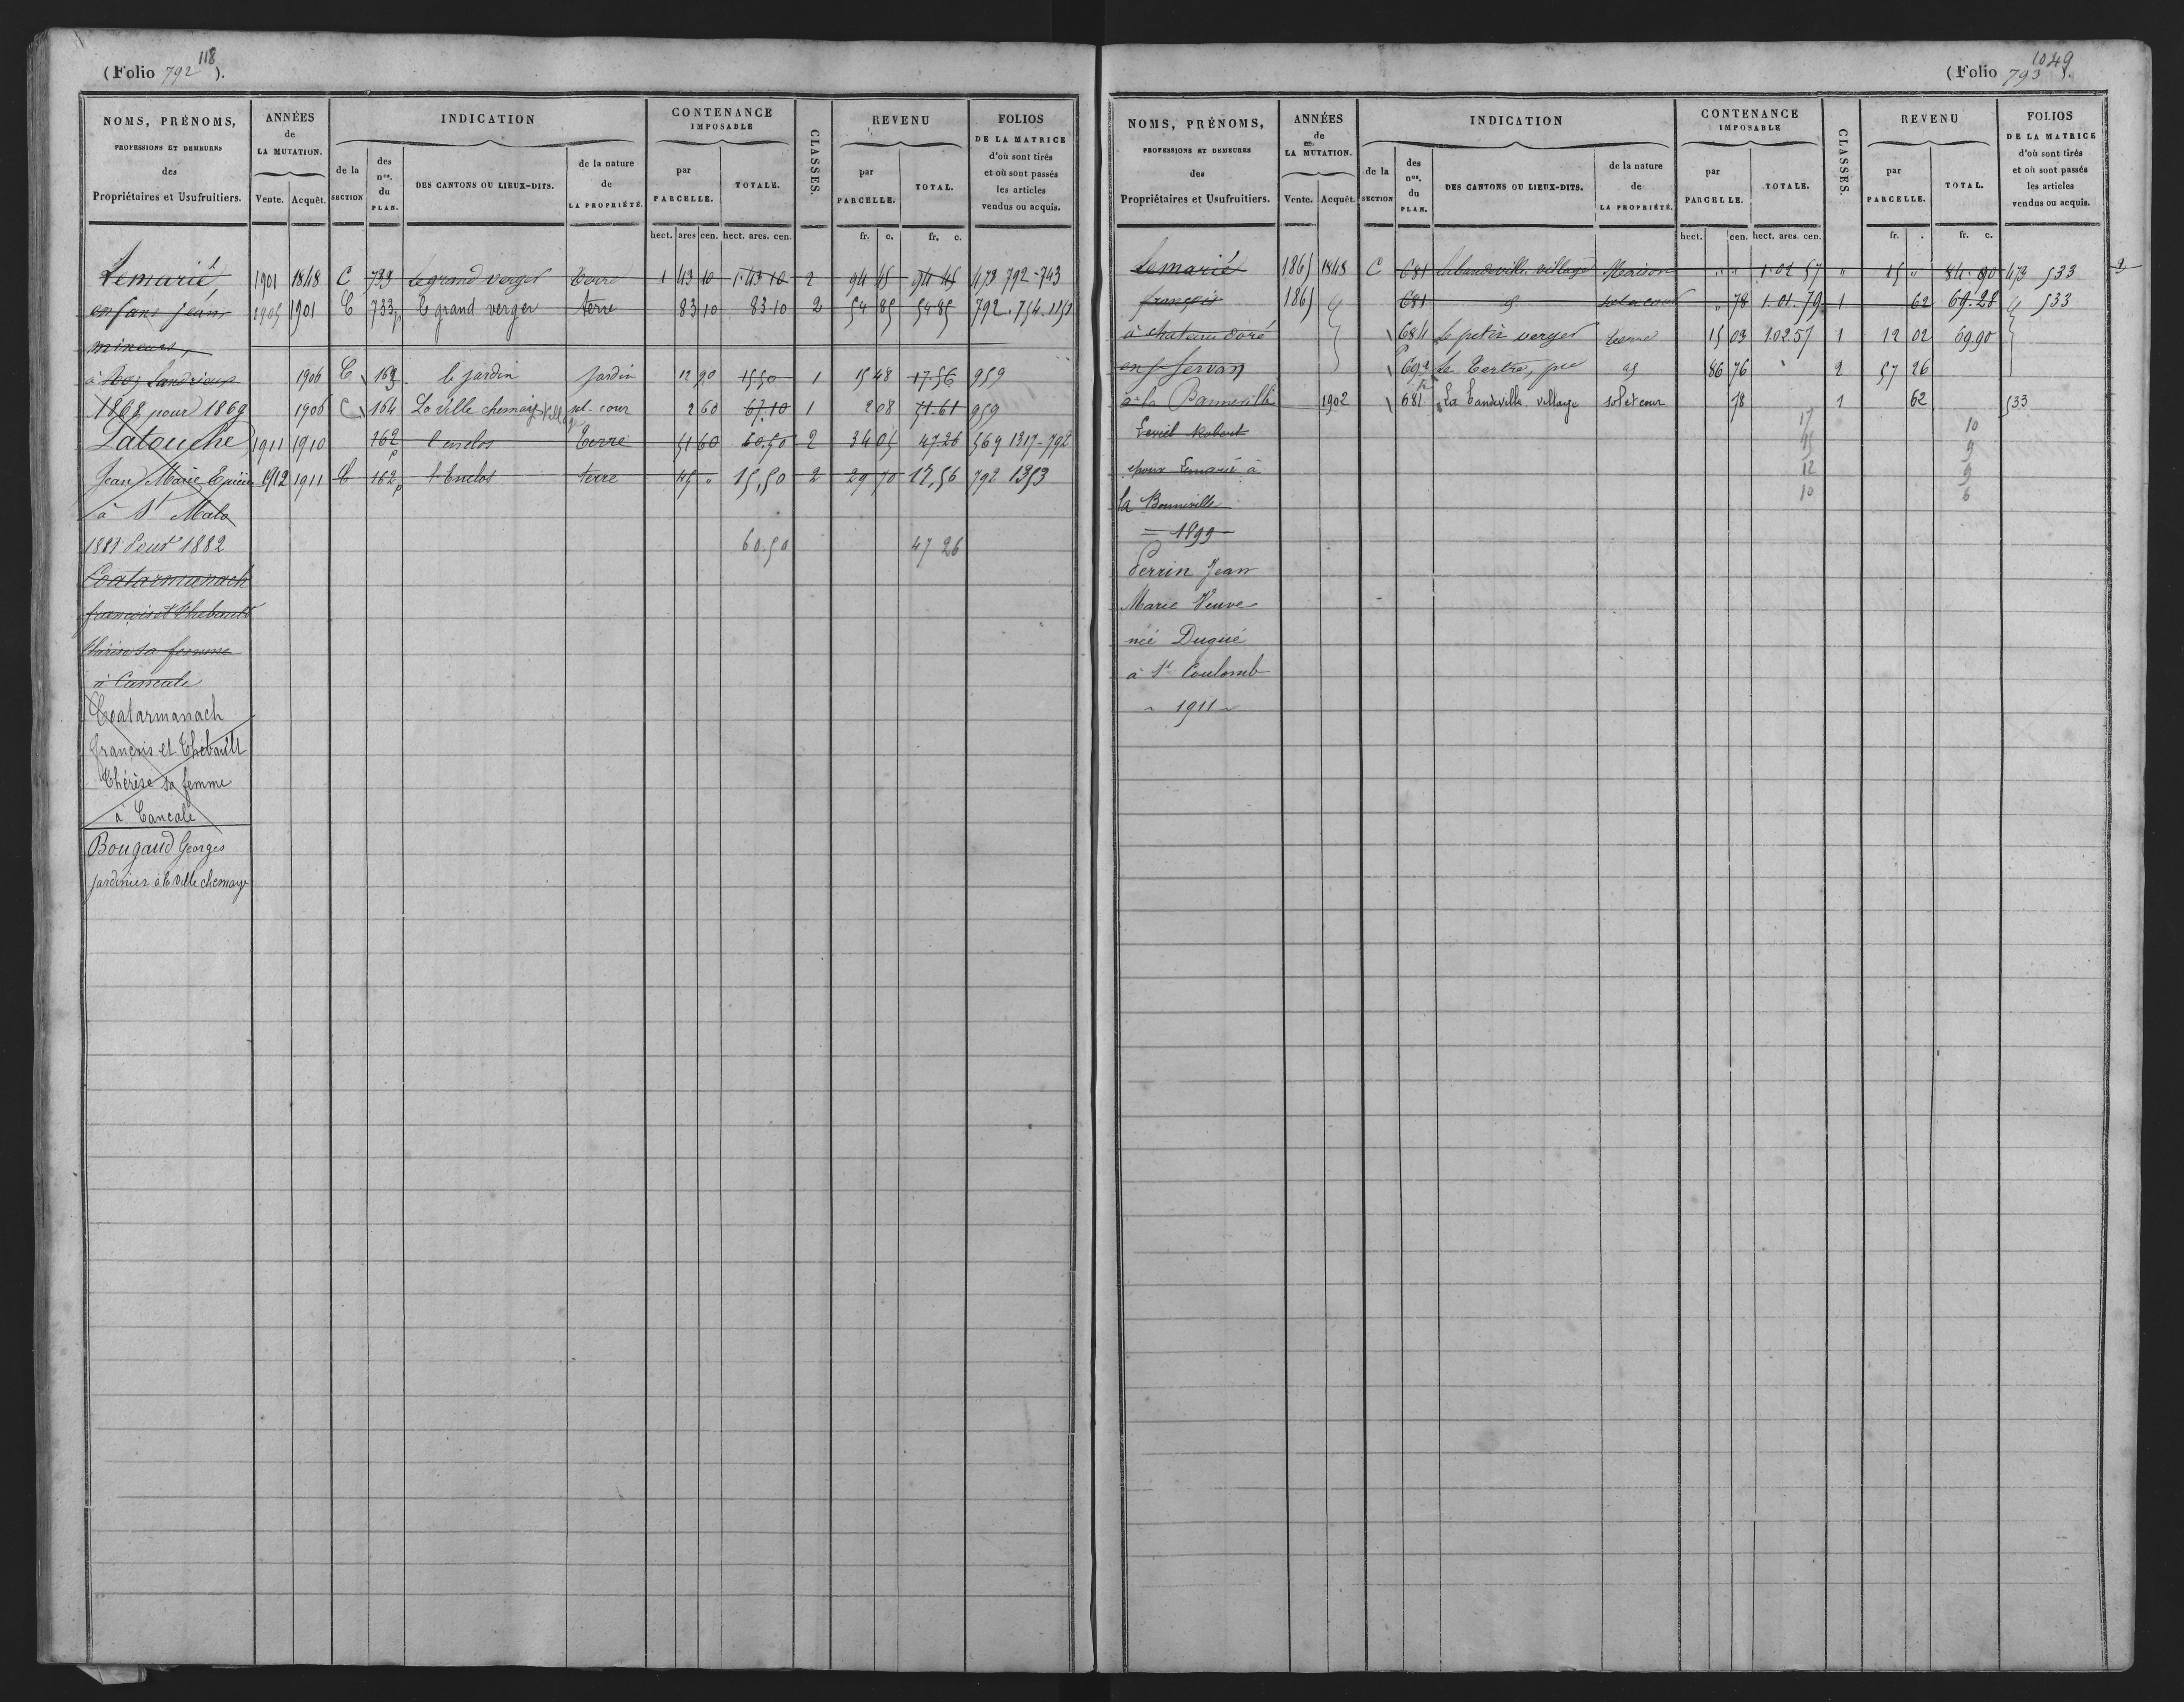 118
(Folio 792).
NOMS, PRÉNOMS,
PROFESSIONS ET DEMEURES
des
Propriétaires et Usufruitiers.
ANNÉES
de
LA MUTATION.
Vente. Acquêt.
INDICATION
de la
SECTION
des
nos.
du
PLAN.
DES CANTONS OU LIEUX-DITS.
de la nature
de
LA PROPRIÉTÉ.
CONTENANCE
IMPOSABLE
par
PARCELLE.
TOTALE.
CLASSES.
REVENU
par
PARCELLE.
TOTAL.
FOLIOS
DE LA MATRICE
d'où sont tirés
et où sont passés
les articles
vendus ou acquis.
hect. ares cen. hect. ares. cen. fr. c. fr. c.
Lemarié 1901 1848 C 733 Le grand verger terre 1 43 10 1.43 10 2 94 45 94 45 473 792-743
enfans jean 1905 1901 C 733p Le grand verger terre 83 10 83 10 2 54 85 54 85 792.754.1151
mineurs,
à 1906 C 163 le jardin jardin 12 90 15 50 1 15 48 17 56 959
1868 pour 1869 1906 C 164 La ville chemaye village sol-cour 2 60 67.10 1 2 08 71.61 959
Latouche 1911 1910 162p l'enclos terre 51 60 60,50 2 34 05 47 26 569 1317-792
Jean Marie Epicier 1912 1911 C 162p l'Enclos terre 45 " 15,50 2 29 70 17,56 792 1353
à St Malo
1881 pour 1882 60.50 47 26
Coatarmanach
françois et Thebault
Thérèse sa femme
à Cancale
Coatarmanach
françois et Thébault
Thérèse sa femme
à Cancale
Bougaud Georges
jardinier à la ville chemaye
1049
(Folio 793).
NOMS, PRÉNOMS,
PROFESSIONS ET DEMEURES
des
Propriétaires et Usufruitiers.
ANNÉES
de
LA MUTATION.
Vente. Acquêt.
INDICATION
de la
SECTION
des
nos.
du
PLAN.
DES CANTONS OU LIEUX-DITS.
de la nature
de
LA PROPRIÉTÉ.
CONTENANCE
IMPOSABLE
par
PARCELLE.
TOTALE.
CLASSES.
REVENU
par
PARCELLE.
TOTAL.
FOLIOS
DE LA MATRICE
d'où sont tirés
et où sont passés
les articles
vendus ou acquis.
hect. cen. hect. ares. cen. fr. . fr. c.
Lemarié 1865 1848 C 681 village Maison " " 1.02 57 " 15 " 84.90 473 533
françois 1865 " 681 id sol et cour " 78 1.01.79 1 62 69.28 " 533
à chateau doré 684 Le petit verger terre 15 03 1.02 57 1 12 02 69 90
en St Servan 692 Le Tertre, pre as 86 76 " 2 57 26
à la Bonneville 1902 681 La village sol et cour 78 1 62 533
Robert 17 10
epoux Lemarié à 12 9
la Bonneville 10 6
= 1899
Perrin Jean
Marie Veuve
née Dugué
à St Coulomb
~ 1911 ~